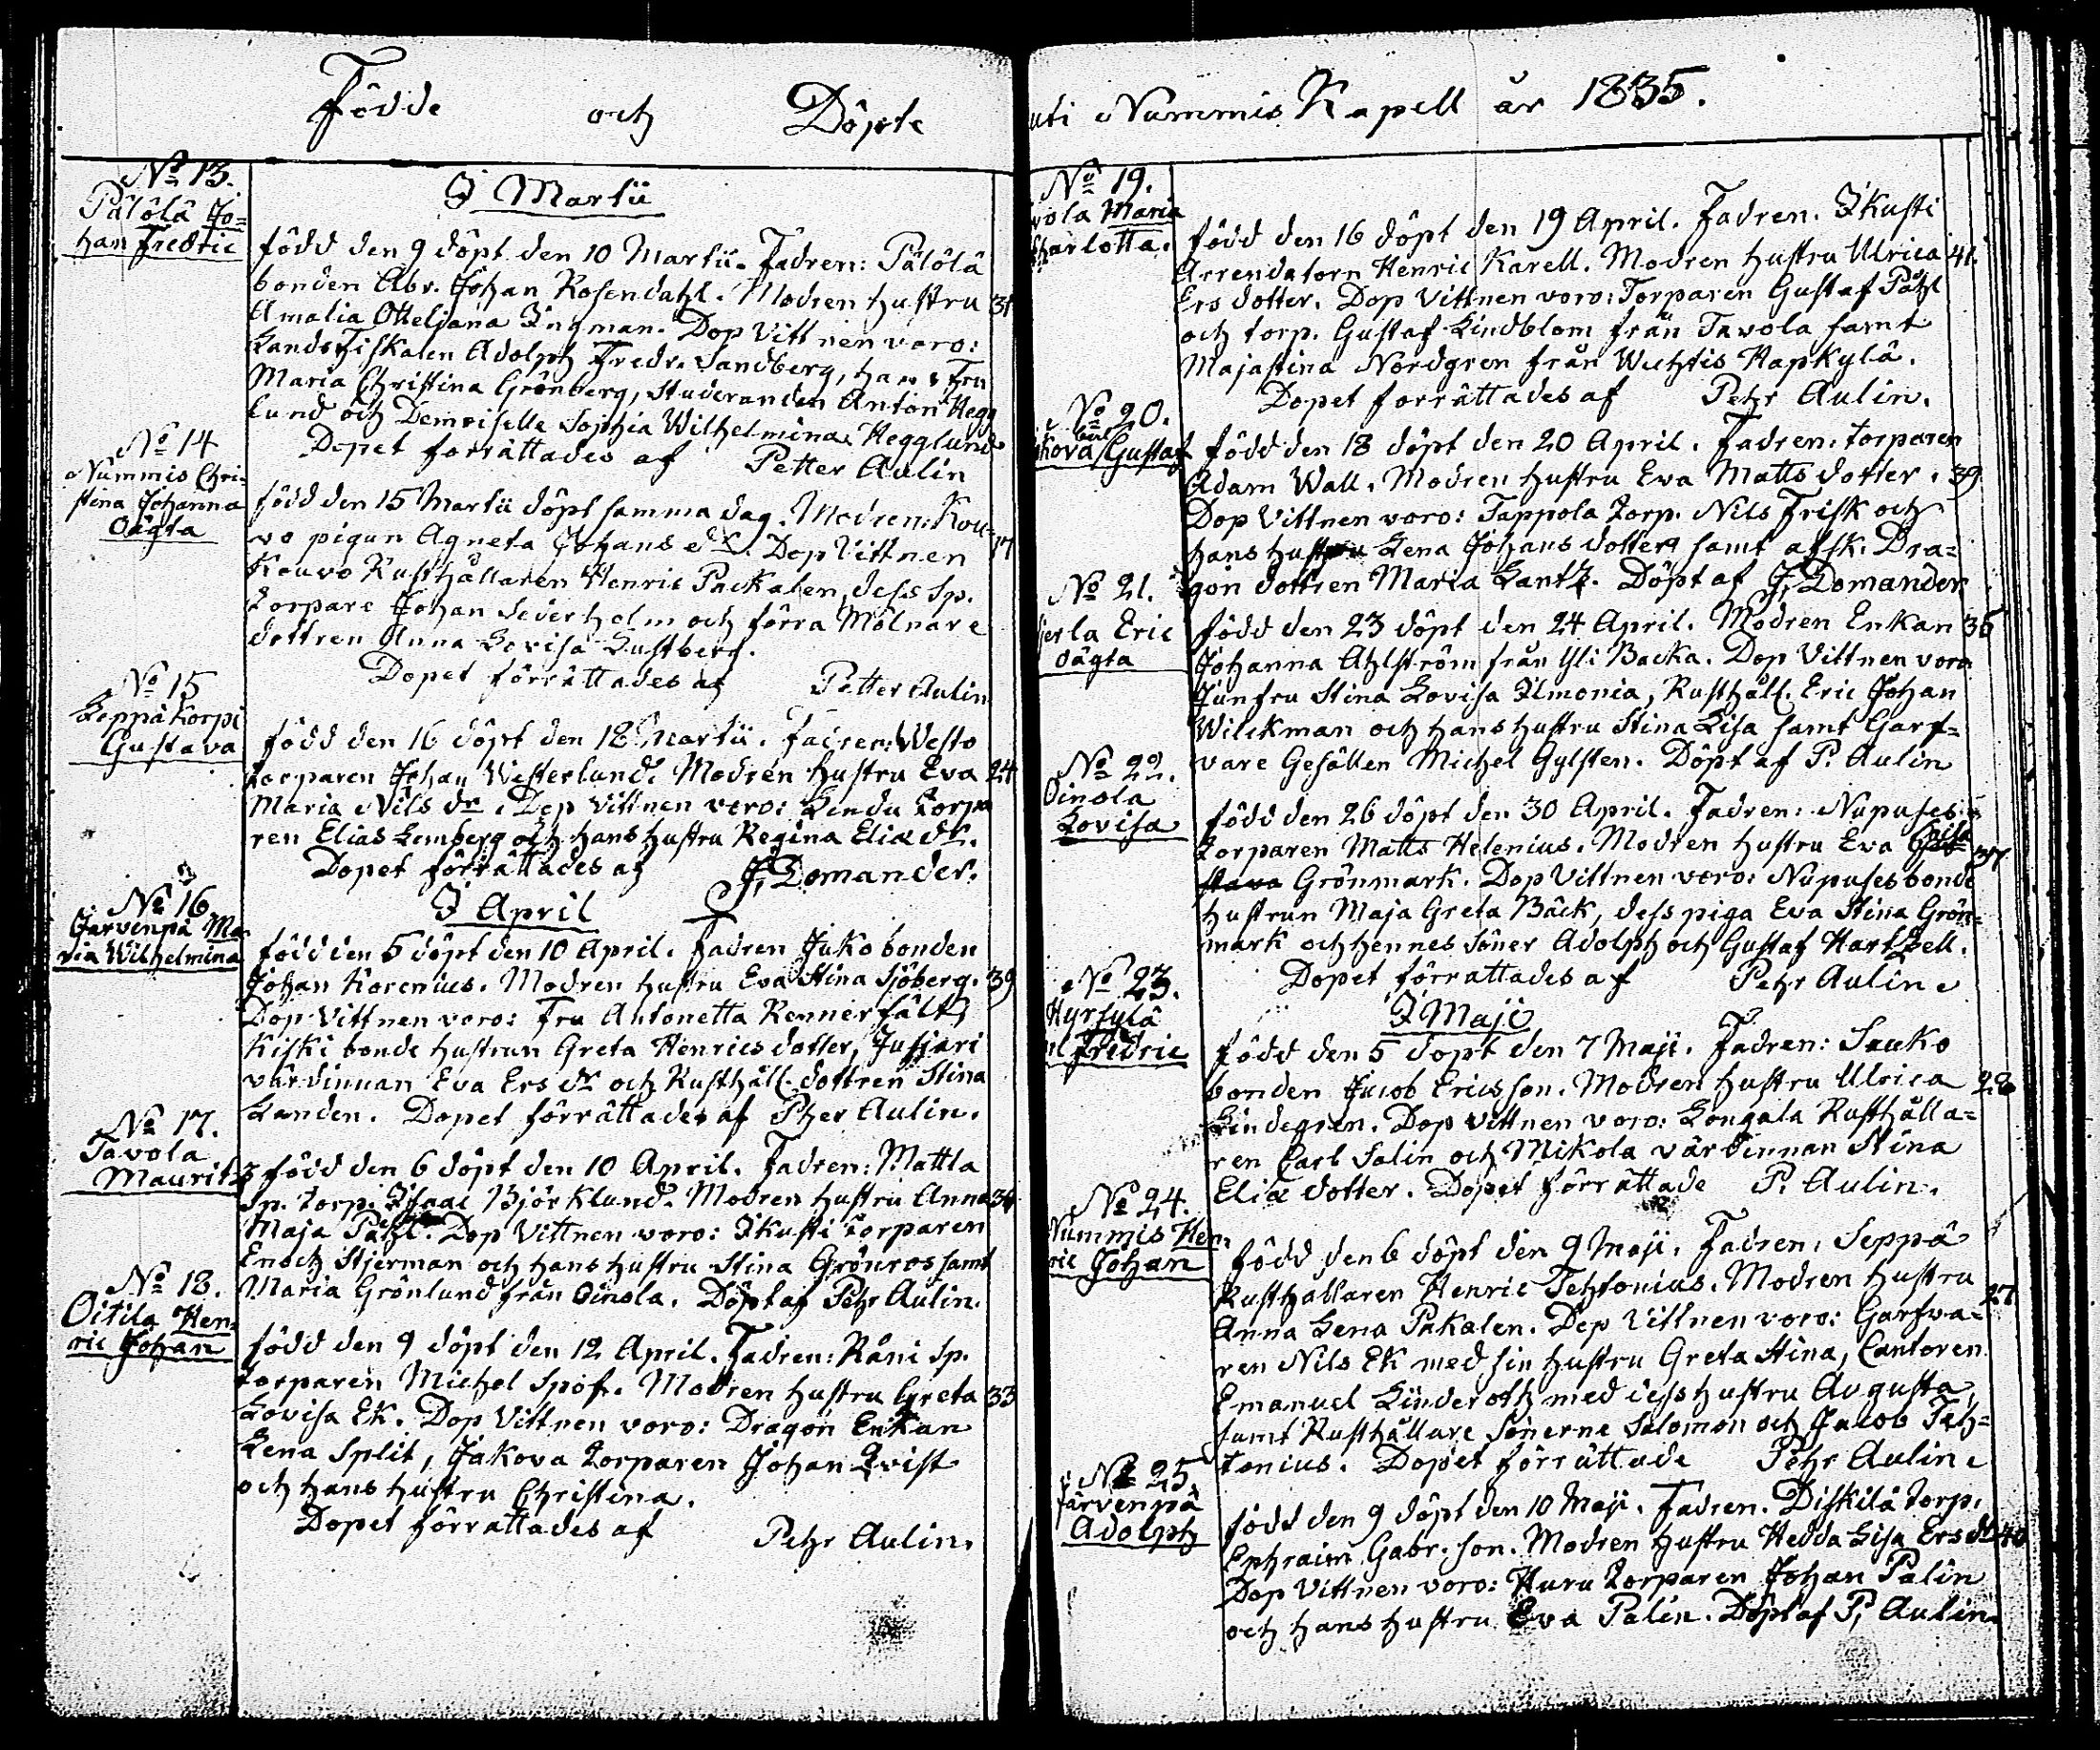 Födde och Döpte
uti Nummis Kapell år 1835.
No 13.
Pälölä Jo=
han Fredric
I Martii
född den 9 döpt den 10 Martii. Fadren: Pälölä
bonden Abr. Johan Rosendahl. Modren hustru 31
Amalia Otteliana Ingman. Dop Vittnen voro:
Landsfiskalen Adolph Fredr. Sandberg, hans Fru
Maria Christina Grönberg, Studeranden Anton Hegg
lund och Demoiselle Sophia Wilhelmina Hegglund
Dopet förrättades af Petter Aulin
No 14
Nummis Chri=
stina Johanna
oägta
född den 15 Martii döpt samma dag. Modren: Kou=
vo pigan Agneta Johans dr. Dop Vittnen 17
Kouvo Rusthållaren Henric Packalen, dess Sp.
torpare Johan Sederholm och förra Mölnare
dottren Anna Lovisa Lustberg.
Dopet förrättades af Petter Aulin
No 15
Leppäkorpi
Gustava
född den 16 döpt den 18 Martii. Fadren: Westo
torparen Johan Westerlund. Modren hustru Eva 24
Maria Nils dr. Dop Vittnen voro: Lindu torpa
ren Elias Lemberg och hans hustru Regina Eliæ dr.
Dopet förrättades af J. Domander.
I April
No 16
Järvenpä Ma
ria Wilhelmina
född den 5 döpt den 10 April. Fadren Juko bonden
Johan Korenius. Modren hustru Eva Stina Sjöberg. 39
Dop Vittnen voro: Fru Antonetta Rennerfält,
Kiski bonde hustrun Greta Henrics dotter, Jusjari
värdinnan Eva Ers dr och Rusthåll. dottren Stina
Landen. Dopet förrättades af Pher Aulin.
No 17.
Tavola
Mauritz
född den 6 döpt den 10 April. Fadren: Mattla
Sp. torp. Isaac Björklund. Modren hustru Anna 34
Maja Påhl. Dop Vittnen voro: Ikusti torparen
Enoch Stjerman och hans hustru Stina Grönros samt
Maria Grönlund från Oinola. Döpt af Pehr Aulin.
No 18.
Oitila Hen=
ric Johan
född den 9 döpt den 12 April. Fadren: Räni Sp.
torparen Michel Spof. Modren hustru Greta 33
Lovisa Ek. Dop Vittnen voro: Dragon Enkan
Lena Split, Jakova torparen Johan Qvist
och hans hustru Christina.
Dopet förrättades af Pehr Aulin.
No 19.
vola Maria
Charlotta.
född den 16 döpt den 19 April. Fadren. Ikusti
Arrendatorn Henric Karell. Modren hustru Ulrica 41.
Ers dotter. Dop Vittnen voro: Torparen Gustaf Påhl
och torp. Gustaf Lindblom från Tavola samt
Majastina Nordgren från Wichtis Hapkylä.
Dopet förrättades af Pehr Aulin.
No 20.
kova Gustaf
född den 18 döpt den 20 April. Fadren: torparen
Adam Wall. Modren hustru Eva Matts dotter. 39
Dop Vittnen voro: Tappola torp. Nils Frisk och
hans hustru Lena Johans dotter, samt afsk. Dra=
gon dottren Maria Lantz. Döpt af J. Domander
No 21.
jerla Eric
oägta
född den 23 döpt den 24 April. Modren Enkan 36
Johanna Ahlström från Yli Backa. Dop Vittnen voro
Junfru Stina Lovisa Ilmonia, Rusthåll. Eric Johan
Wilckman och hans hustru Stina Lisa samt Garf=
vare Gesällen Michel Gylsten. Döpt af P. Aulin
No 22.
Oinola
Lovisa
född den 26 döpt den 30 April. Fadren: Nupuses
torparen Matts Helenius. Modren hustru Eva Caisa 37
stava Grönmark. Dop Vittnen voro: Nupuses bonde
hustrun Maja Greta Bäck, dess piga Eva Stina Grön=
mark och hennes söner Adolph och Gustaf Hartzell.
Dopet förrättades af Pehr Aulin.
I Maji
No 23.
Hyrsylä
Fredric
född den 5 döpt den 7 Maji. Fadren: Sauko
bonden Jacob Ericsson. Modren hustru Ulrica 28
Lindegren. Dop Vittnen voro: Longala Rusthålla=
ren Carl Salin och Mikola värdinnan Stina
Eliæ dotter. Dopet förrättade P. Aulin.
No 24.
Nummis Hen
ric Johan
född den 6 döpt den 9 Maji. Fadren: Seppä
Rusthållaren Henric Tehtonius. Modren hustru
Anna Lena Pakalen. Dop Vittnen voro: Garfva= 27
ren Nils Ek med sin hustru Greta Stina, Cantoren
Emanuel Linderoth med dess hustru Augusta,
samt Rusthållare sönerne Salomon och Jacob Teh=
tonius. Dopet förrättade Pehr Aulin.
No 25.
Järvenpä
Adolph
född den 9 döpt den 10 Maji. Fadren. Diskilä torp.
Ephraim Gabr. son. Modren hustru Hedda Lisa Ers dr 40
Dop Vittnen voro: Huru torparen Johan Palin
och hans hustru Eva Palin. Döpt af P. Aulin.